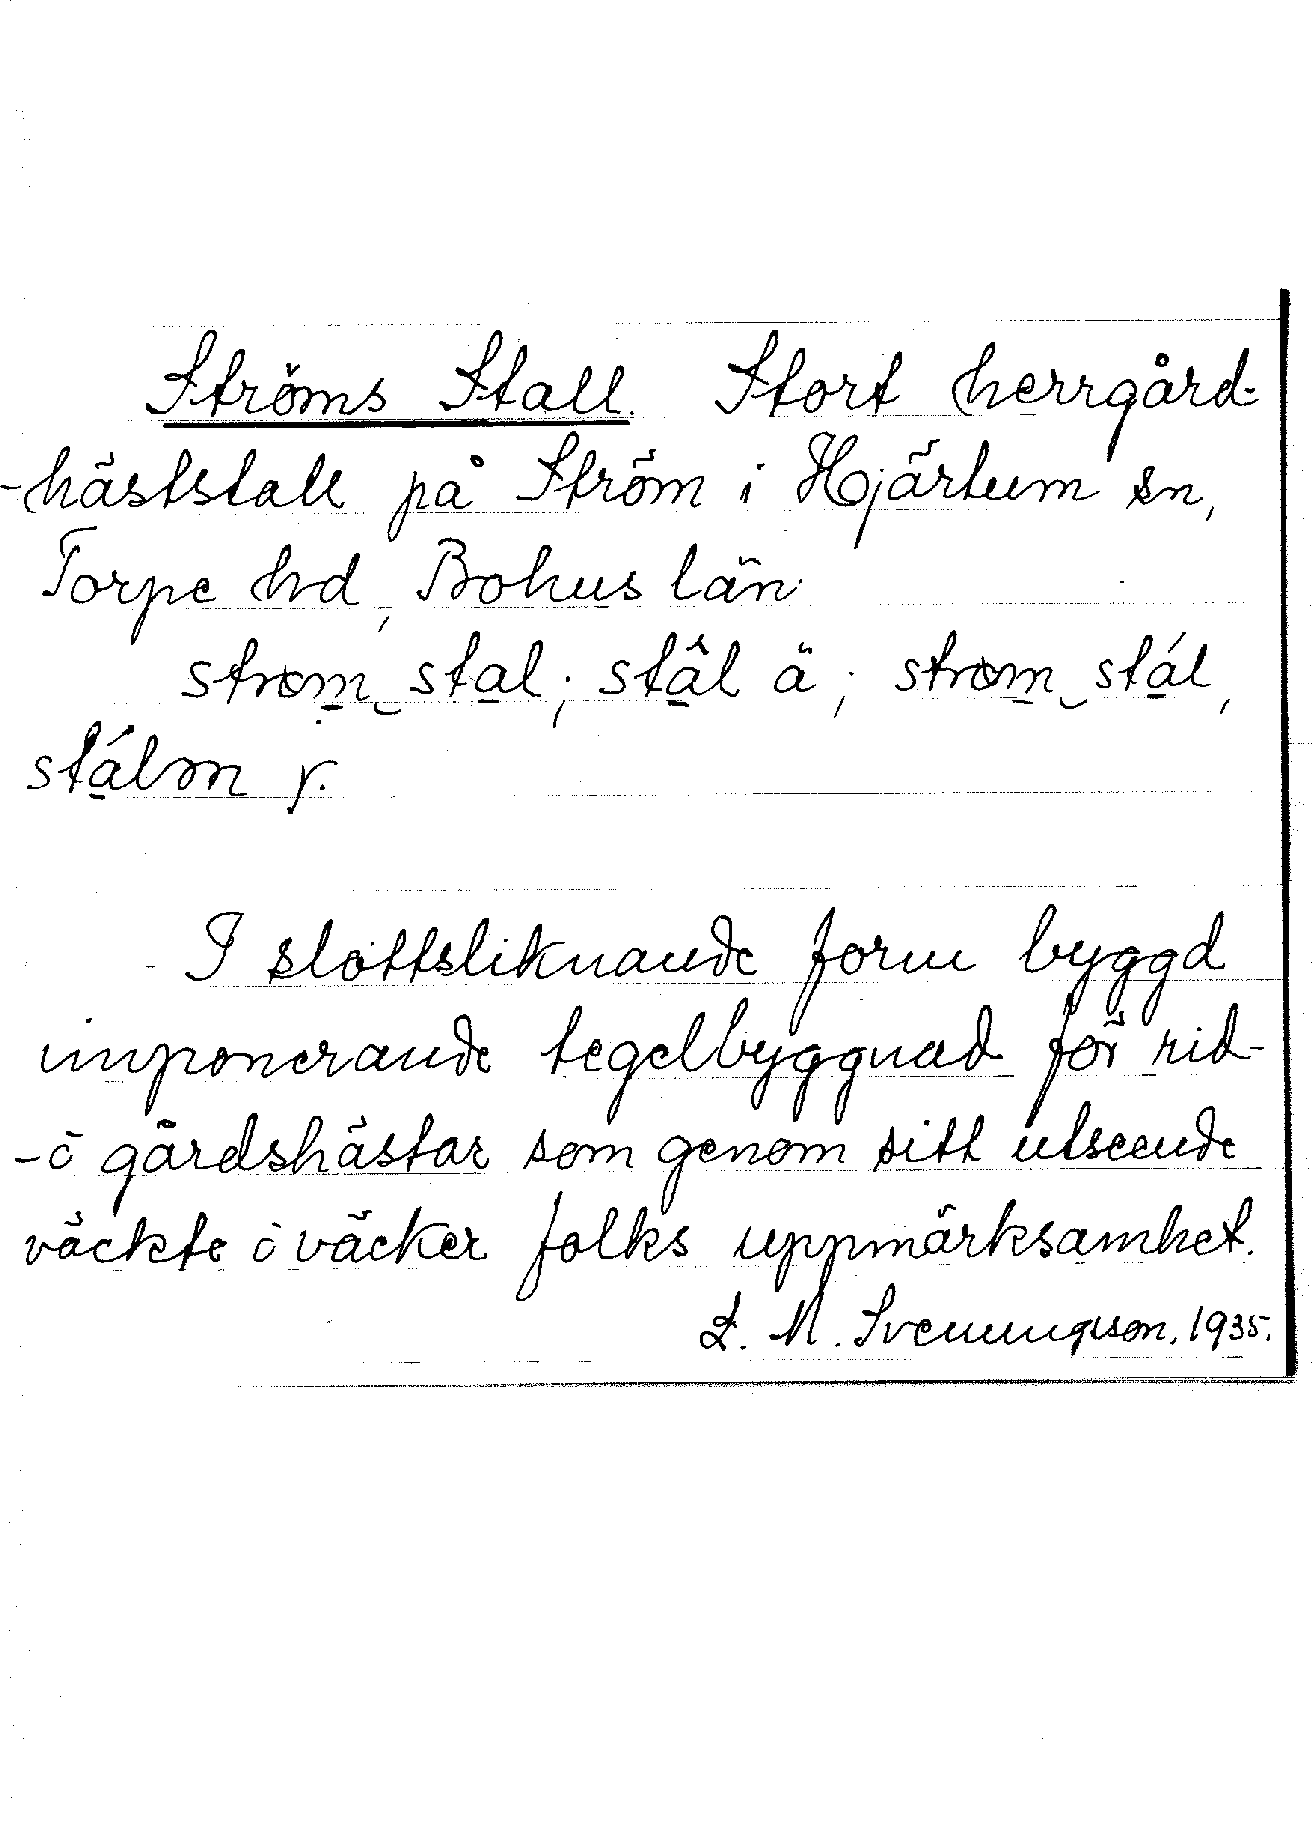 Ströms Stall. Stort herrgård-
-häststall på Ström i Hjärtum sn,
Torpe hd, Bohus län
strøm stal; stâl ä; strøm stál,
stálon y.
I slottsliknande form byggd
imponerande tegelbyggnad för rid-
-ö gårdshästar som genom sitt utseende
väckte ö väcker folks uppmärksamhet.
L. M. Svenungsson, 1935.